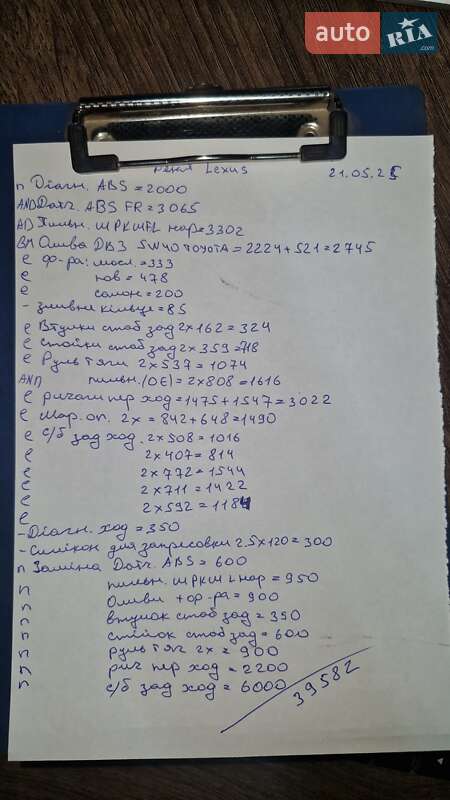 auto RIA .com
Lexus 21.05.25
п Діагн. ABS = 2000
AND Датч. ABS FR = 3065
AD Пильн. ШРКШFL нар = 3302
ВМ Олива ДВЗ 5W40 TOYOTA = 2224 + 521 = 2745
е ф-ра: мосл. = 333
е пов = 478
е салон = 200
- зливне кільце = 85
е Втулки стаб зад 2 x 162 = 324
е Стойки стаб зад 2 x 359 = 718
е Руль тяги 2 x 537 = 1074
АНП пильн. (OE) = 2 x 808 = 1616
е ричаги пер ход = 1475 + 1547 = 3022
е Шар. оп. 2x = 842 + 648 = 1490
е с/б зад ход. 2 x 508 = 1016
е 2 x 407 = 814
е 2 x 772 = 1544
е 2 x 711 = 1422
е 2 x 592 = 1184
- Діагн. ход = 350
- Силікон для запресовки 2.5 x 120 = 300
п Заміна Датч. ABS = 600
п пильн. ШРКШ L нар = 950
п Оливи + ф-ра = 900
п втулок стаб зад = 350
п стійок стаб зад = 600
п руль тяг 2x = 900
п рич пер ход = 2200
п с/б зад ход = 6000
39582